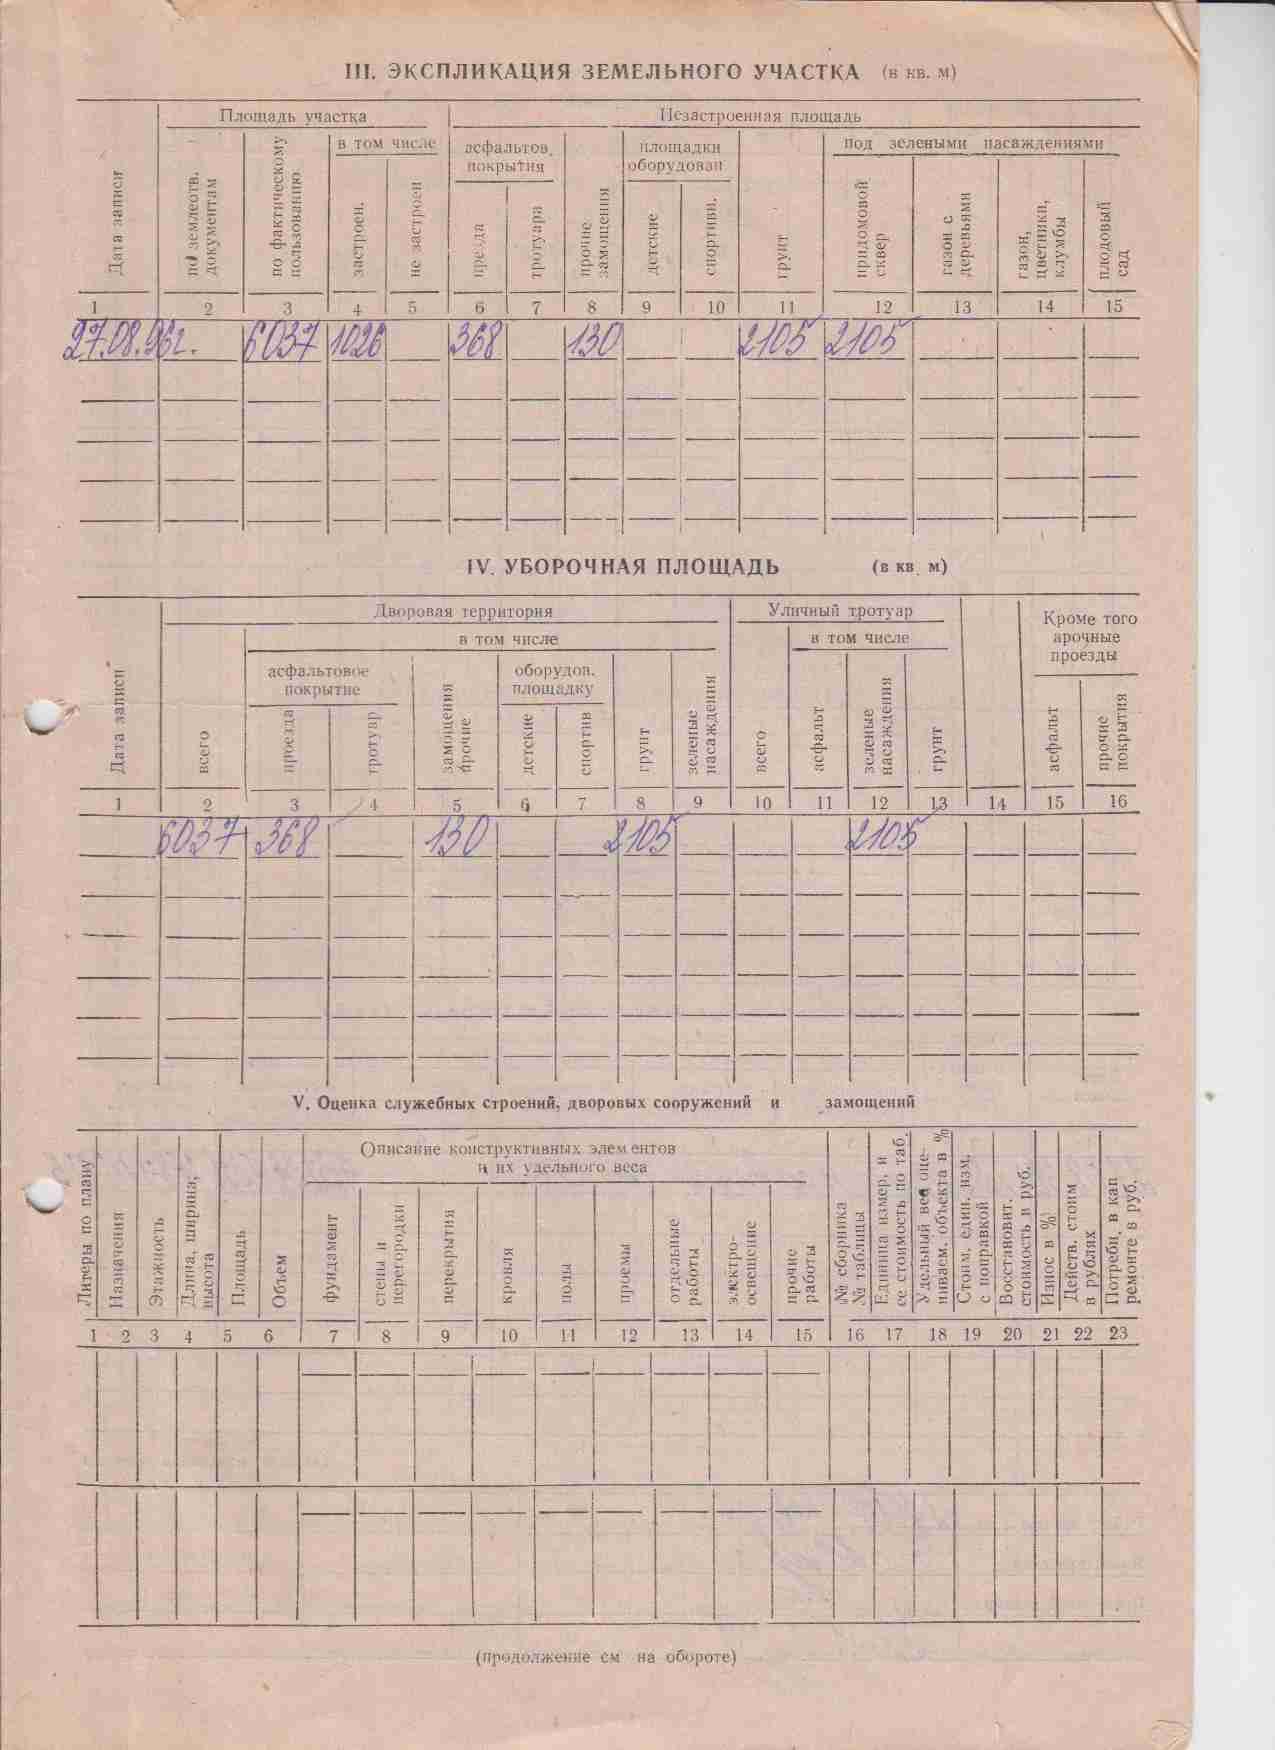 III. ЭКСПЛИКАЦИЯ ЗЕМЕЛЬНОГО УЧАСТКА (в кв. м)
Дата записи
Площадь участка
Незастроенная площадь
по землеотв. документам
по фактическому пользованию
в том числе
застроен.
не застроен
асфальтов. покрытия
проезда
тротуара
прочие замощения
площадки оборудован
детские
спортивн.
грунт
под зелеными насаждениями
придомовой сквер
газон с деревьями
газон, цветники, клумбы
плодовый сад
1 2 3 4 5 6 7 8 9 10 11 12 13 14 15
27.08.96г. 6037 1026 368 130 2105 2105
IV. УБОРОЧНАЯ ПЛОЩАДЬ (в кв. м)
Дата записи
Дворовая территория
Уличный тротуар
Кроме того арочные проезды
всего
в том числе
асфальтовое покрытие
проезда
тротуар
замощения прочие
оборудов. площадку
детские
спортив
грунт
зеленые насаждения
всего
в том числе
асфальт
зеленые насаждения
грунт
асфальт
прочие покрытия
1 2 3 4 5 6 7 8 9 10 11 12 13 14 15 16
6037 368 130 2105 2105
V. Оценка служебных строений, дворовых сооружений и замощений
Литеры по плану
Назначения
Этажность
Длина, ширина, высота
Площадь
Объем
Описание конструктивных элементов
и их удельного веса
фундамент
стены и перегородки
перекрытия
кровля
полы
проемы
отдельные работы
электро-освещение
прочие работы
№ сборника № таблицы
Единица измер. и ее стоимость по таб.
Удельный вес оце-ниваем. объекта в %
Стоим. един. изм. с поправкой
Восстановит. стоимость в руб.
Износ в %
Действ. стоим в рублях
Потребн. в кап ремонте в руб.
1 2 3 4 5 6 7 8 9 10 11 12 13 14 15 16 17 18 19 20 21 22 23
(продолжение см на обороте)